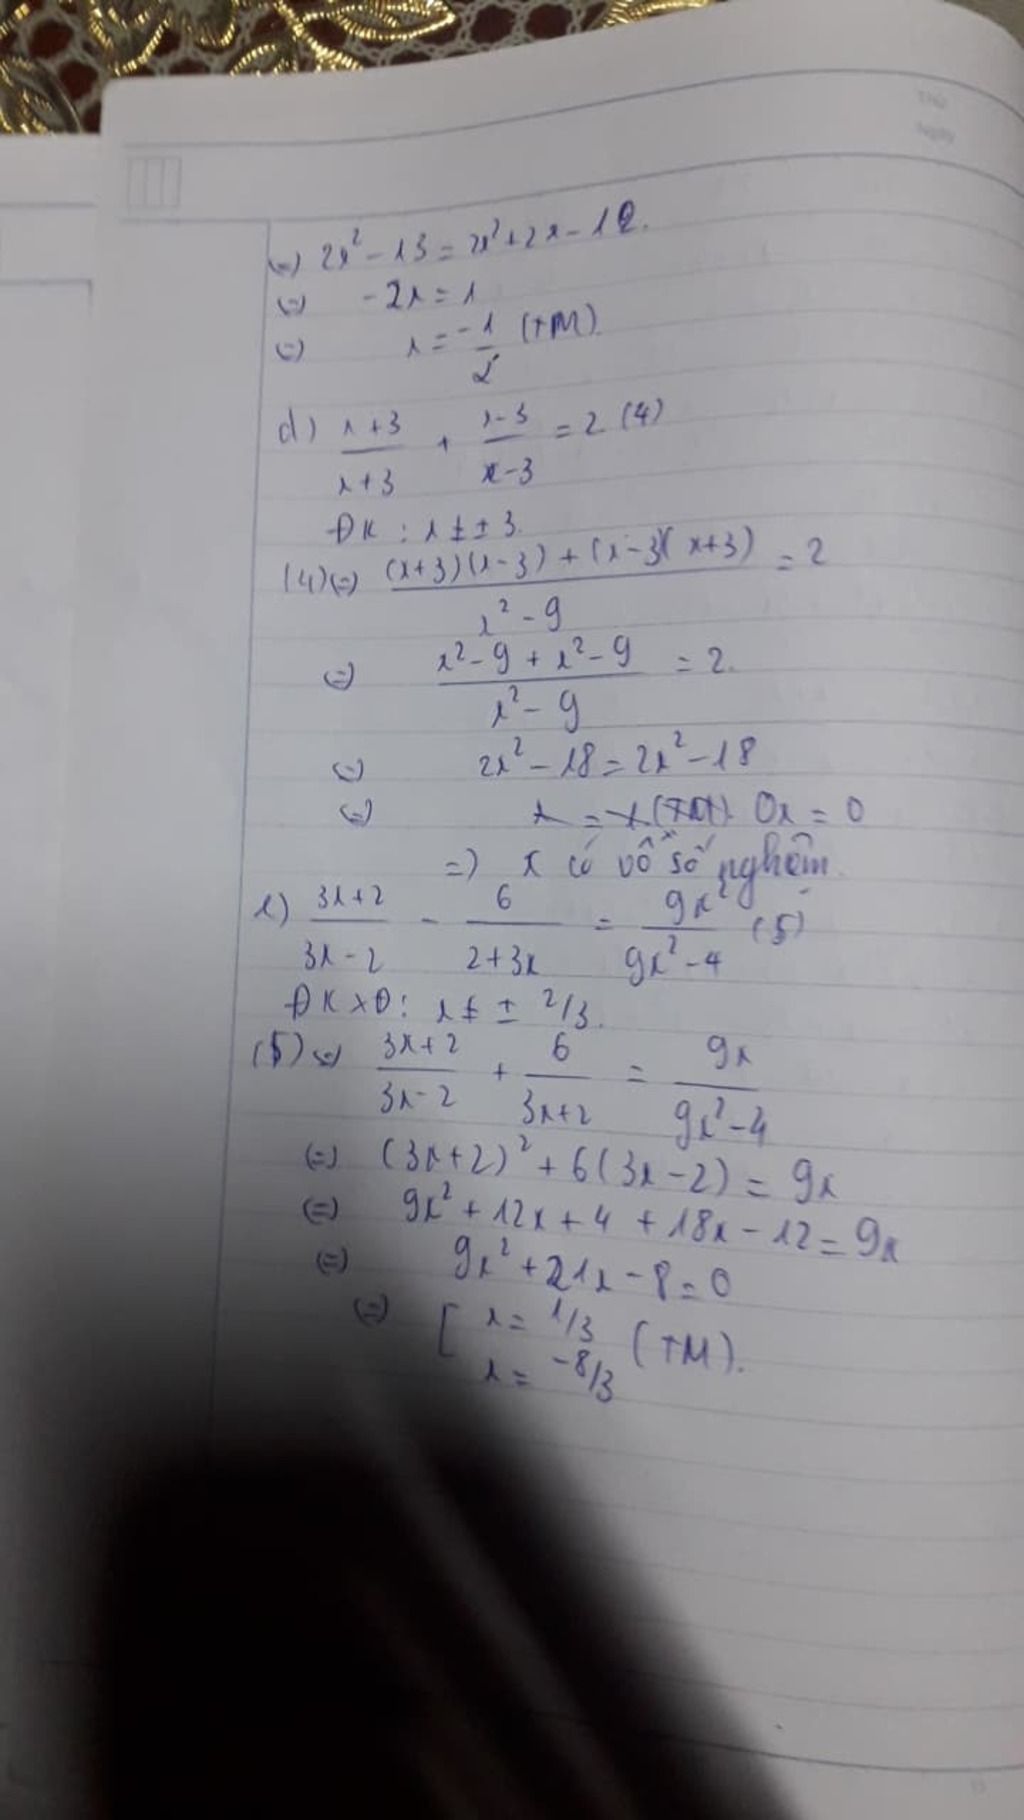 Thứ
Ngày
(=) 2x² - 13 = 2x² + 2x - 12.
(=) -2x = 1
(=) x = -1/2 (TM)
d) (x+3)/(x+3) + (x-3)/(x-3) = 2 (4)
ĐK : x ≠ ± 3.
(4) (=) ((x+3)(x-3) + (x-3)(x+3))/(x² - 9) = 2
(=) (x² - 9 + x² - 9)/(x² - 9) = 2.
(=) 2x² - 18 = 2x² - 18
(=) 0x = 0
=) x có vô số nghêm.
e) (3x+2)/(3x-2) - 6/(2+3x) = 9x²/(9x²-4) (5)
ĐKXĐ: x ≠ ± 2/3.
(5) (=) (3x+2)/(3x-2) + 6/(3x+2) = 9x/(9x²-4)
(=) (3x+2)² + 6(3x-2) = 9x
(=) 9x² + 12x + 4 + 18x - 12 = 9x
(=) 9x² + 21x - 8 = 0
(=) [ x = 1/3
x = -8/3 (TM).